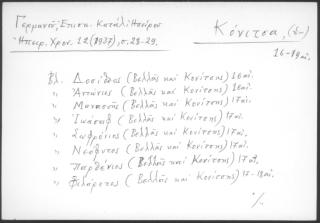 Γερμανοῦ, Επισκ. Κατάλ. Ηπείρου
Ηπειρ. Χρον. 12 (1937), σ. 28-29.
Κόνιτσα, (ἡ-)
16-19 αἰ.
Βλ. Δοσίθεος (Βελλᾶς καὶ Κονίτσης) 16 αἰ.
" Ἀντώνιος (Βελλᾶς καὶ Κονίτσης) 16 αἰ.
" Μανασσῆς (Βελλᾶς καὶ Κονίτσης) 17 αἰ.
" Ἰωάσαφ (Βελλᾶς καὶ Κονίτσης) 17 αἰ.
" Σωφρόνιος (Βελλᾶς καὶ Κονίτσης) 17 αἰ.
" Νεόφυτος (Βελλᾶς καὶ Κονίτσης) 17 αἰ.
" Παρθένιος (Βελλᾶς καὶ Κονίτσης) 17 αἰ.
" Φιλάρετος (Βελλᾶς καὶ Κονίτσης) 17-18 αἰ.
./.